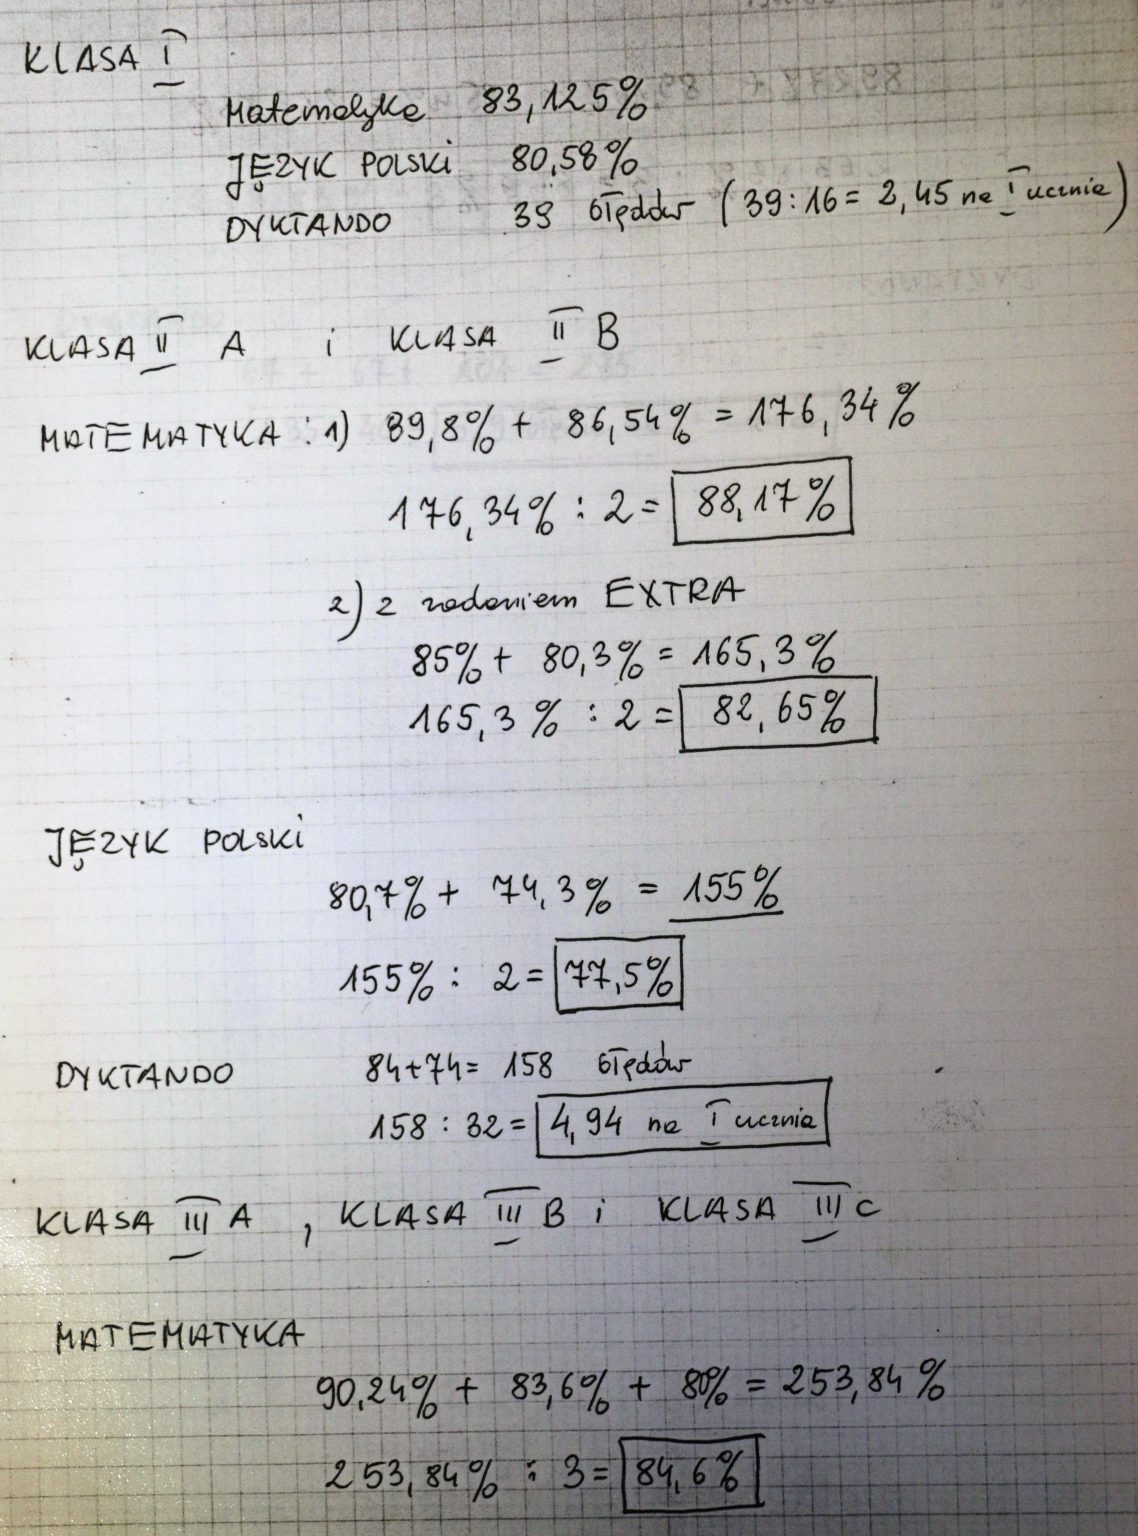 KLASA I
Matematyka 83,125%
JĘZYK POLSKI 80,58%
DYKTANDO 39 błędów (39:16= 2,45 na I ucznia)
KLASA II A i KLASA II B
MATEMATYKA : 1) 89,8% + 86,54% = 176,34%
176,34% : 2 = 88,17%
2) z zadaniem EXTRA
85% + 80,3% = 165,3%
165,3% : 2 = 82,65%
JĘZYK POLSKI
80,7% + 74,3% = 155%
155% : 2 = 77,5%
DYKTANDO 84+74= 158 błędów
158 : 32 = 4,94 na I ucznia
KLASA III A , KLASA III B i KLASA III C
MATEMATYKA
90,24% + 83,6% + 80% = 253,84%
253,84% : 3 = 84,6%